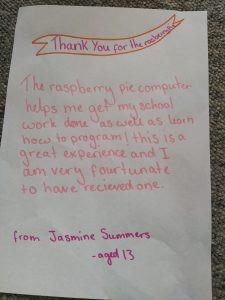 Thank You for the
The raspberry pie computer
helps me get my school
work done as well as learn
how to program! this is a
great experience and I
am very fourtunate
to have recieved one.
from Jasmine Summers
-aged 13